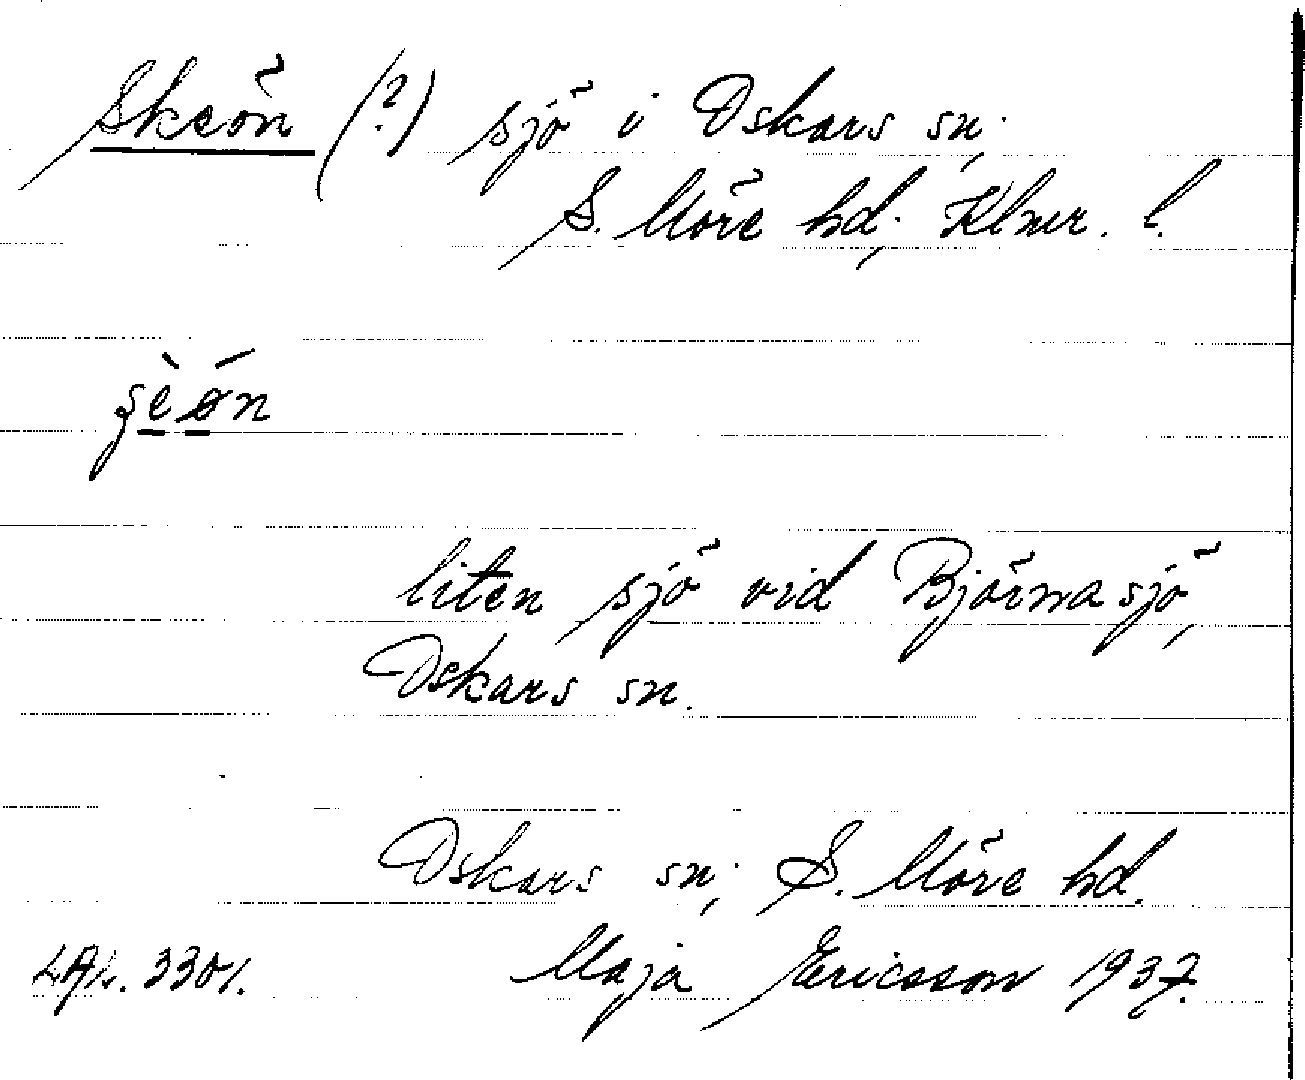 Skeön (?) sjö i Oskars sn;
S. Möre hd; Klmr. l.
liten sjö vid Björnasjö,
Oskars sn.
Oskars sn; S. Möre hd.
Maja Ericsson 1937.